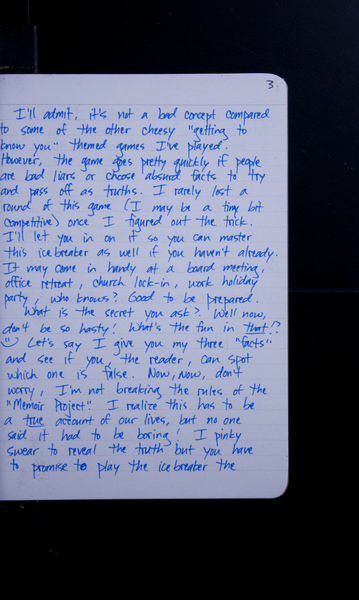 3.
I'll admit, it's not a bad concept compared
to some of the other cheesy "getting to
know you" themed games I've played.
However, the game goes pretty quickly if people
are bad liars or choose absurd facts to try
and pass off as truths. I rarely lost a
round of this game (I may be a tiny bit
competitive) once I figured out the trick.
I'll let you in on it so you can master
this icebreaker as well if you haven't already.
It may come in handy at a board meeting,
office retreat, church lock-in, work holiday
party, who knows? Good to be prepared.
What is the secret you ask? Well now,
don't be so hasty! What's the fun in that!?
Let's say I give you my three "facts"
and see if you, the reader, can spot
which one is false. Now, now, don't
worry, I'm not breaking the rules of the
"Memoir Project." I realize this has to be
a true account of our lives, but no one
said it had to be boring! I pinky
swear to reveal the truth but you have
to promise to play the icebreaker the